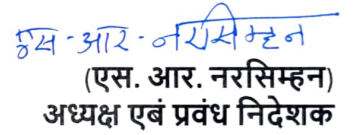 एस - आर - नरसिम्हन
(एस. आर. नरसिम्हन)
अध्यक्ष एबं प्रवंध निदेशक